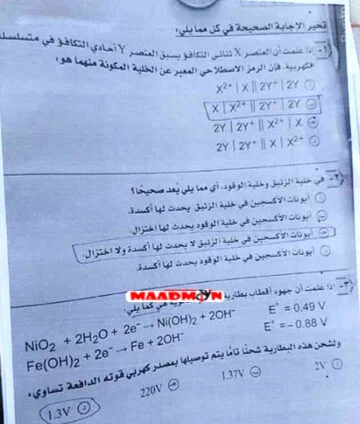 تخير الإجابة الصحيحة في كل مما يلي:
١- إذا علمت أن العنصر X ثنائي التكافؤ يسبق العنصر Y أحادي التكافؤ في متسلسلة
كهربية، فإن الرمز الاصطلاحي المعبر عن الخلية المكونة منهما هو:
X²⁺ | X || 2Y⁺ | 2Y
X | X²⁺ || 2Y⁺ | 2Y
2Y | 2Y⁺ || X²⁺ | X
2Y | 2Y⁺ || X | X²⁺
٢- في خلية الزئبق وخلية الوقود، أي مما يلي يُعد صحيحًا؟
أيونات الأكسجين في خلية الزئبق يحدث لها أكسدة.
أيونات الأكسجين في خلية الوقود يحدث لها اختزال.
أيونات الأكسجين في خلية الزئبق لا يحدث لها أكسدة ولا اختزال.
أيونات الأكسجين في خلية الوقود يحدث لها أكسدة.
٣- إذا علمت أن جهود أقطاب بطارية هي كما يلي:
MAADMOYN
NiO₂ + 2H₂O + 2e⁻ → Ni(OH)₂ + 2OH⁻ E° = 0.49 V
Fe(OH)₂ + 2e⁻ → Fe + 2OH⁻ E° = - 0.88 V
ولشحن هذه البطارية شحنًا تامًا يتم توصيلها بمصدر كهربي قوته الدافعة تساوي:
2V
1.37V
220V
1.3V